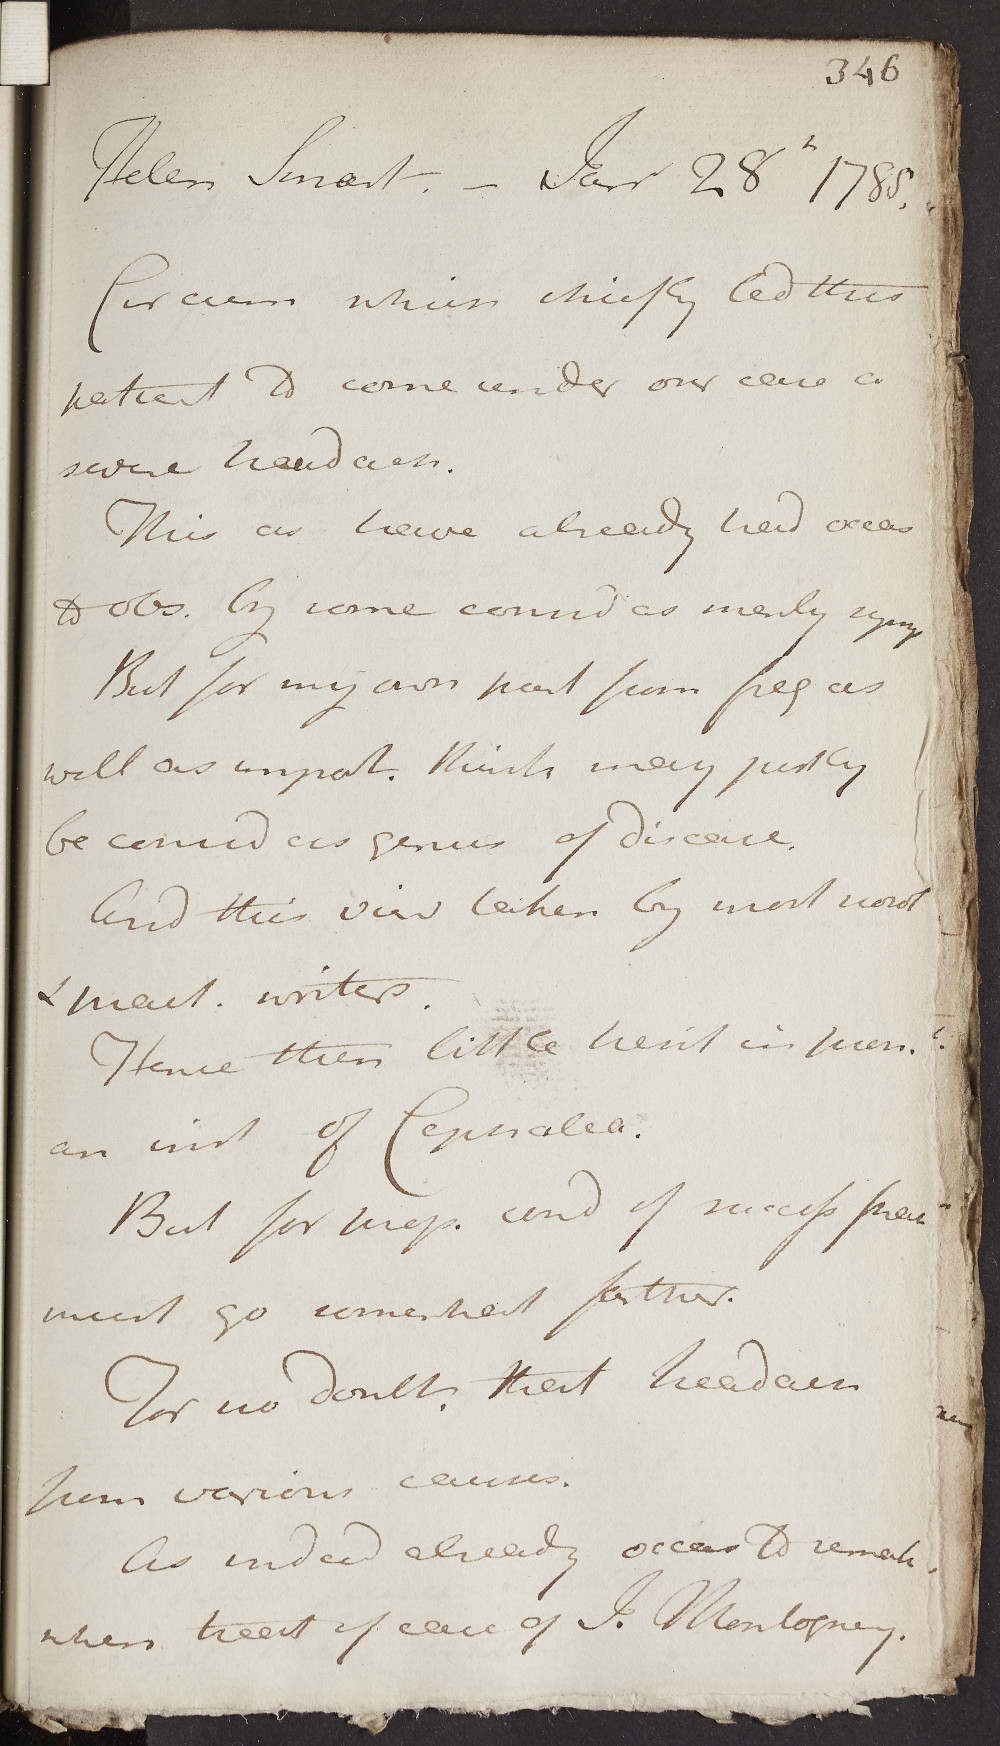 346
Helen Smart. – Janr 28th 1785.
Circum which chiefly led this
patient to come under our care a
severe headach.
This as have already had occas
to obs. by some consid as merely symp
But for my own part from freq as
well as import. think may justly
be consid as genus of disease.
And this view taken by most nosol
& pract. writers.
Hence then little hesit in pron.
an inst of Cephalea.
But for prop. cond of success prac
must go somewhat farther.
For no doubt, that headach
from various causes.
As indeed already occas to remark.
when treat of case of J. Montogney.